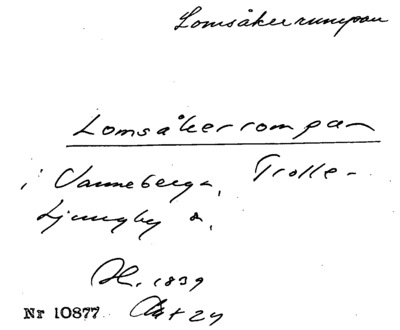 Lomsåkerrumpan
Lomsåkerrompan
i Vanneberga, Trolle-
Ljungby s.
H. 1839
Nr 10877 Akt 24